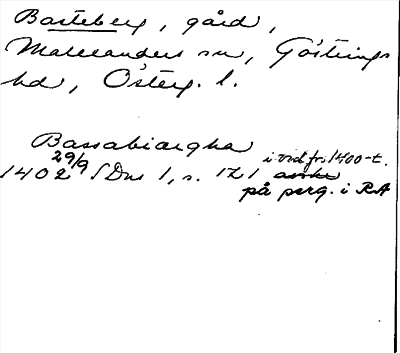 Basteberg, gård,
Marianders sn, Göstrings
hd, Österg. l.
Bassabiærgha
i vid fr. 1400-t.
1402 29/9 SDns 1, s. 121 avskr
på perg. i RA